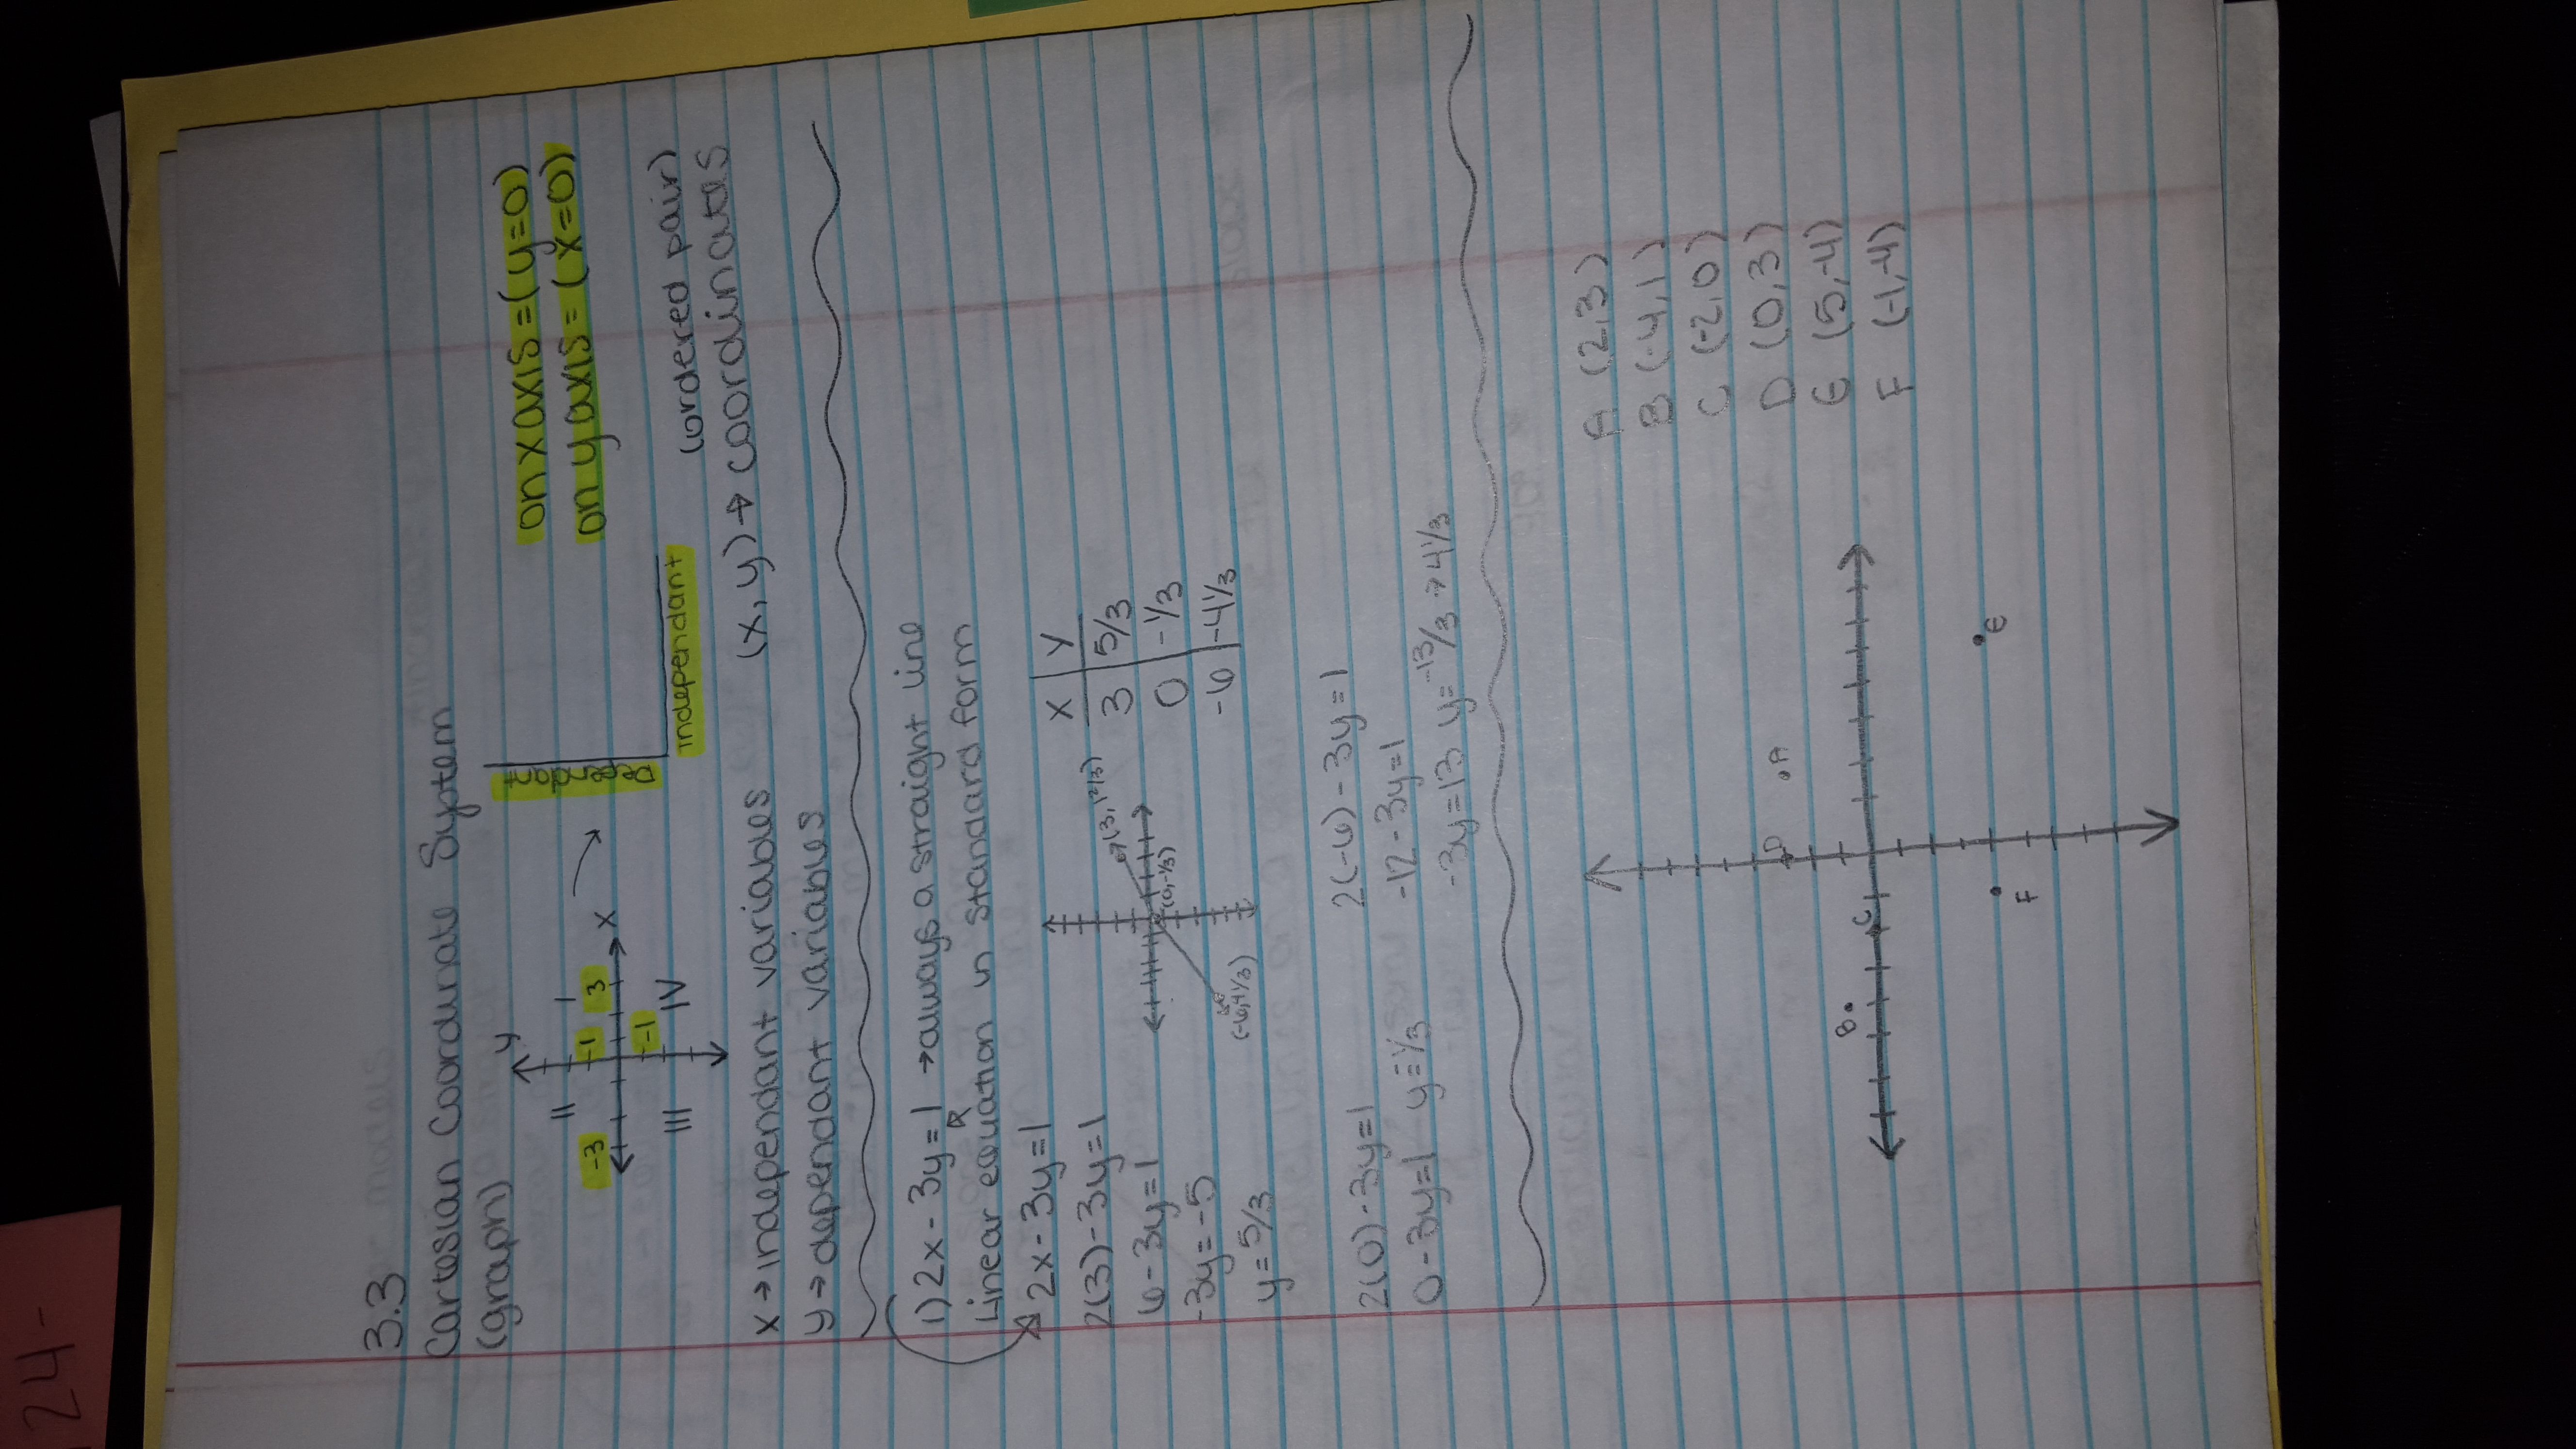 24-
3.3
Cartesian Coordinate System
(graph)
y
II
I
-3
-1
3
x
-1
III
IV
independant
on x axis = (y=0)
on y axis = (x=0)
x → independant variables
y → dependant variables
(ordered pair)
(x, y) → coordinates
1) 2x - 3y = 1 → always a straight line
Linear equation in standard form
2x - 3y = 1
2(3) - 3y = 1
6 - 3y = 1
-3y = -5
y = 5/3
(3, 1 2/3)
(0, -1/3)
(-6, 4 1/3)
x | y
3 | 5/3
0 | -1/3
-6 | -4 1/3
2(0) - 3y = 1
0 - 3y = 1 y = -1/3
2(-6) - 3y = 1
-12 - 3y = 1
-3y = 13 y = -13/3 → 4 1/3
D
A
B
C
F
E
A (2,3)
B (-4,1)
C (-2,0)
D (0,3)
E (5,-4)
F (-1,-4)